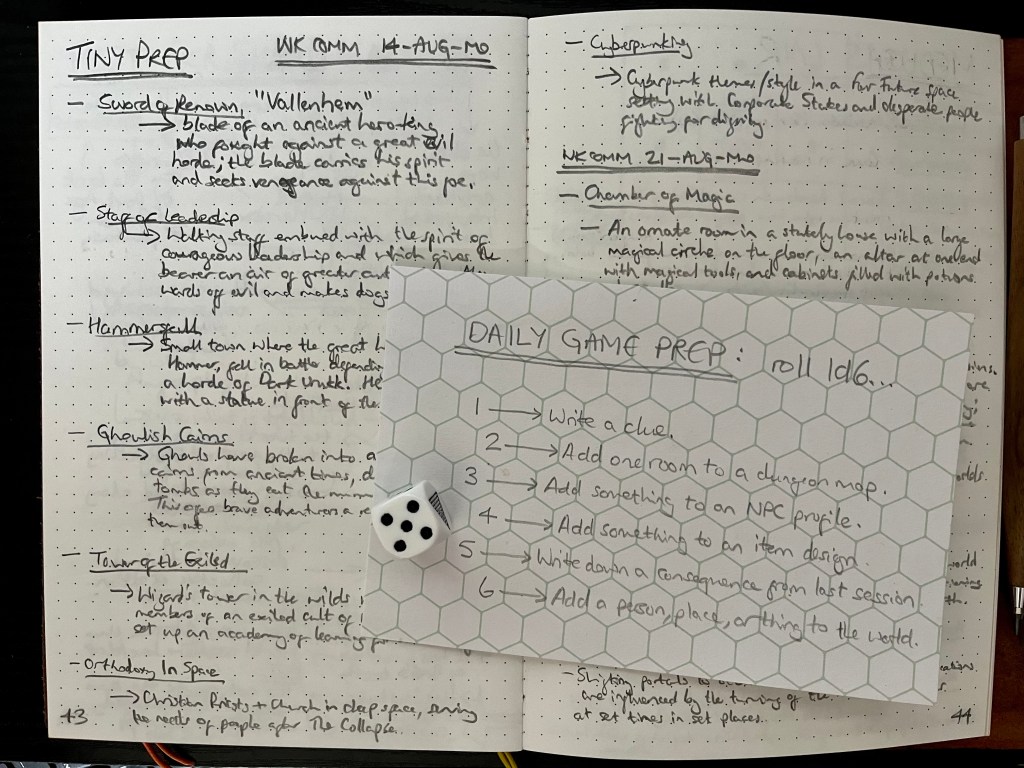 TINY PREP
WK COMM 14-AUG-MO
- Sword of Renown, "Vallenhem"
→ blade of an ancient hero-king
who fought against a great evil
horde; the blade carries his spirit
and seeks vengeance against this foe.
- Staff of Leadership
→ Walking staff embued with the spirit of
courageous leadership and which gives the
bearer an air of greater
wards of evil and makes dogs
- Hammersfall
→ Small town where the great
Hammer, fell in battle defending
a horde of Dark
with a statue in front of the
- Ghoulish Cairns
→ Ghouls have broken into
cairns from ancient times,
tombs as they eat the
This open brave adventurers a
them out.
- Tower of the Exiled
→ Wizard's tower in the wilds
members of an exiled cult of
set up an academy of learning
- Orthodoxy In Space
→ Christian Priests + Church in deep space, serving
the needs of people after The Collapse.
43
- Cyberpunking
→ Cyberpunk themes/style in a far future space
setting with Corporate States and desperate people
fighting for dignity.
WK COMM 21-AUG-MO
- Chamber of Magic
- An ornate room in a stately house with a large
magical circle on the floor, an altar at one end
with magical tools, and cabinets filled with potions.
DAILY GAME PREP: roll 1d6...
1 → Write a clue.
2 → Add one room to a dungeon map.
3 → Add something to an NPC profile.
4 → Add something to an item design.
5 → Write down a consequence from last session.
6 → Add a person, place, or thing to the world.
- Shifting portals
are influenced by the turning of the
at set times in set places.
44